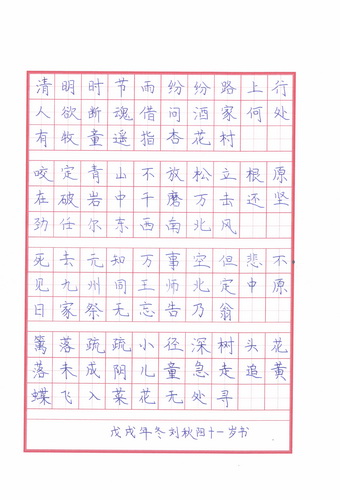 清明时节雨纷纷路上行
人欲断魂借问酒家何处
有牧童遥指杏花村
咬定青山不放松立根原
在破岩中千磨万击还坚
劲任尔东西南北风
死去元知万事空但悲不
见九州同王师北定中原
日家祭无忘告乃翁
篱落疏疏小径深树头花
落未成阴儿童急走追黄
蝶飞入菜花无处寻
戊戌年冬刘秋阳十一岁书